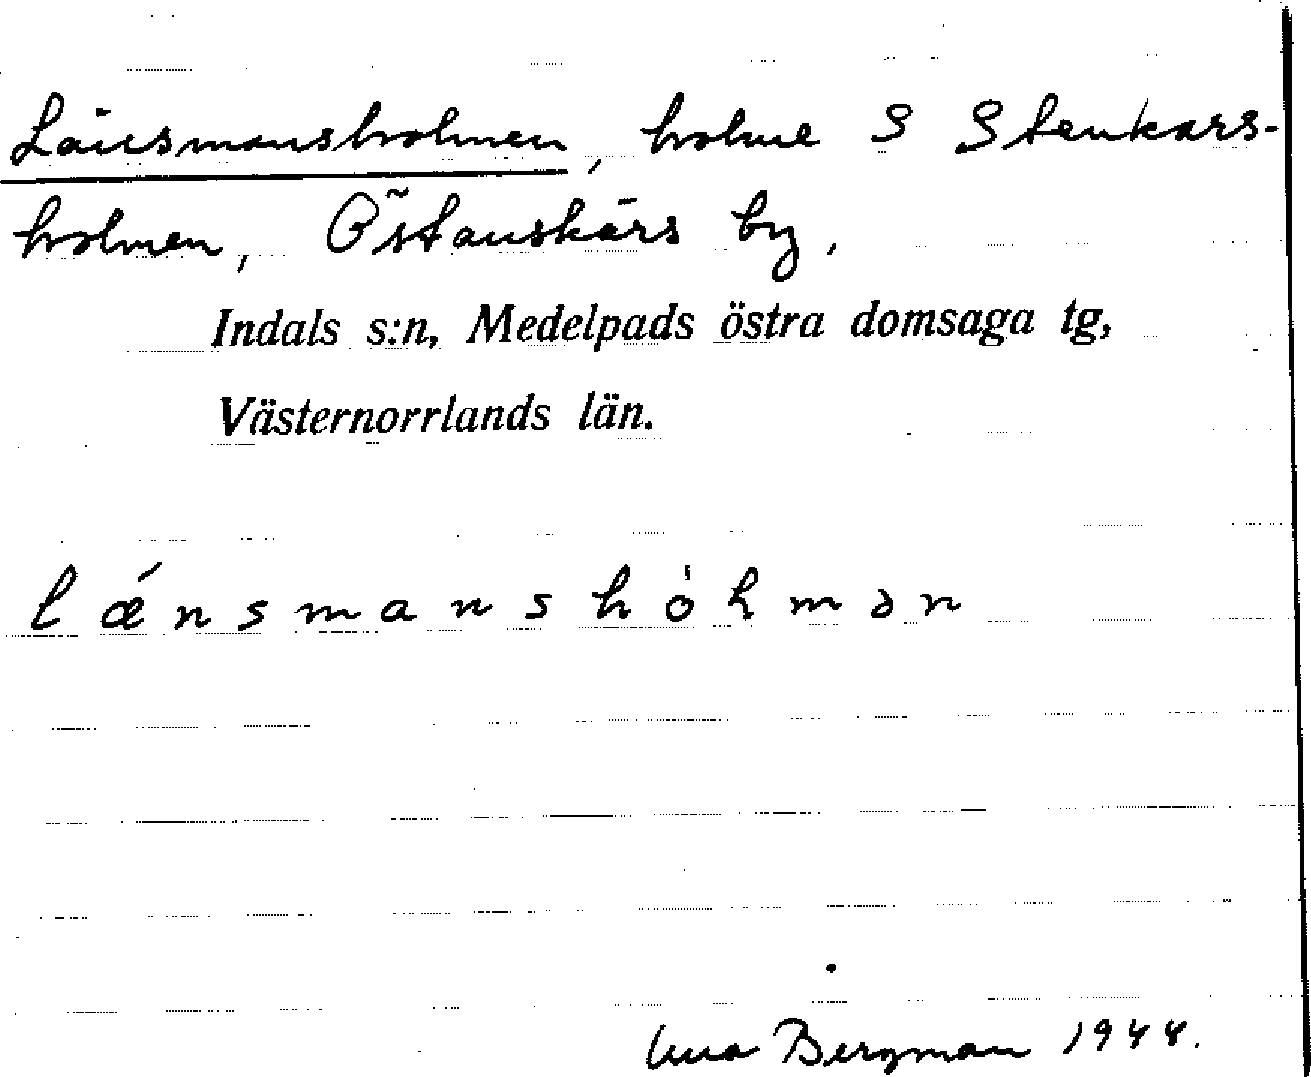 Länsmansholmen, holme S Stenkars-
holmen, Östanskärs by,
Indals s:n, Medelpads östra domsaga tg,
Västernorrlands län.
lǽnsmanshȯɦmən
Bergman 1944.